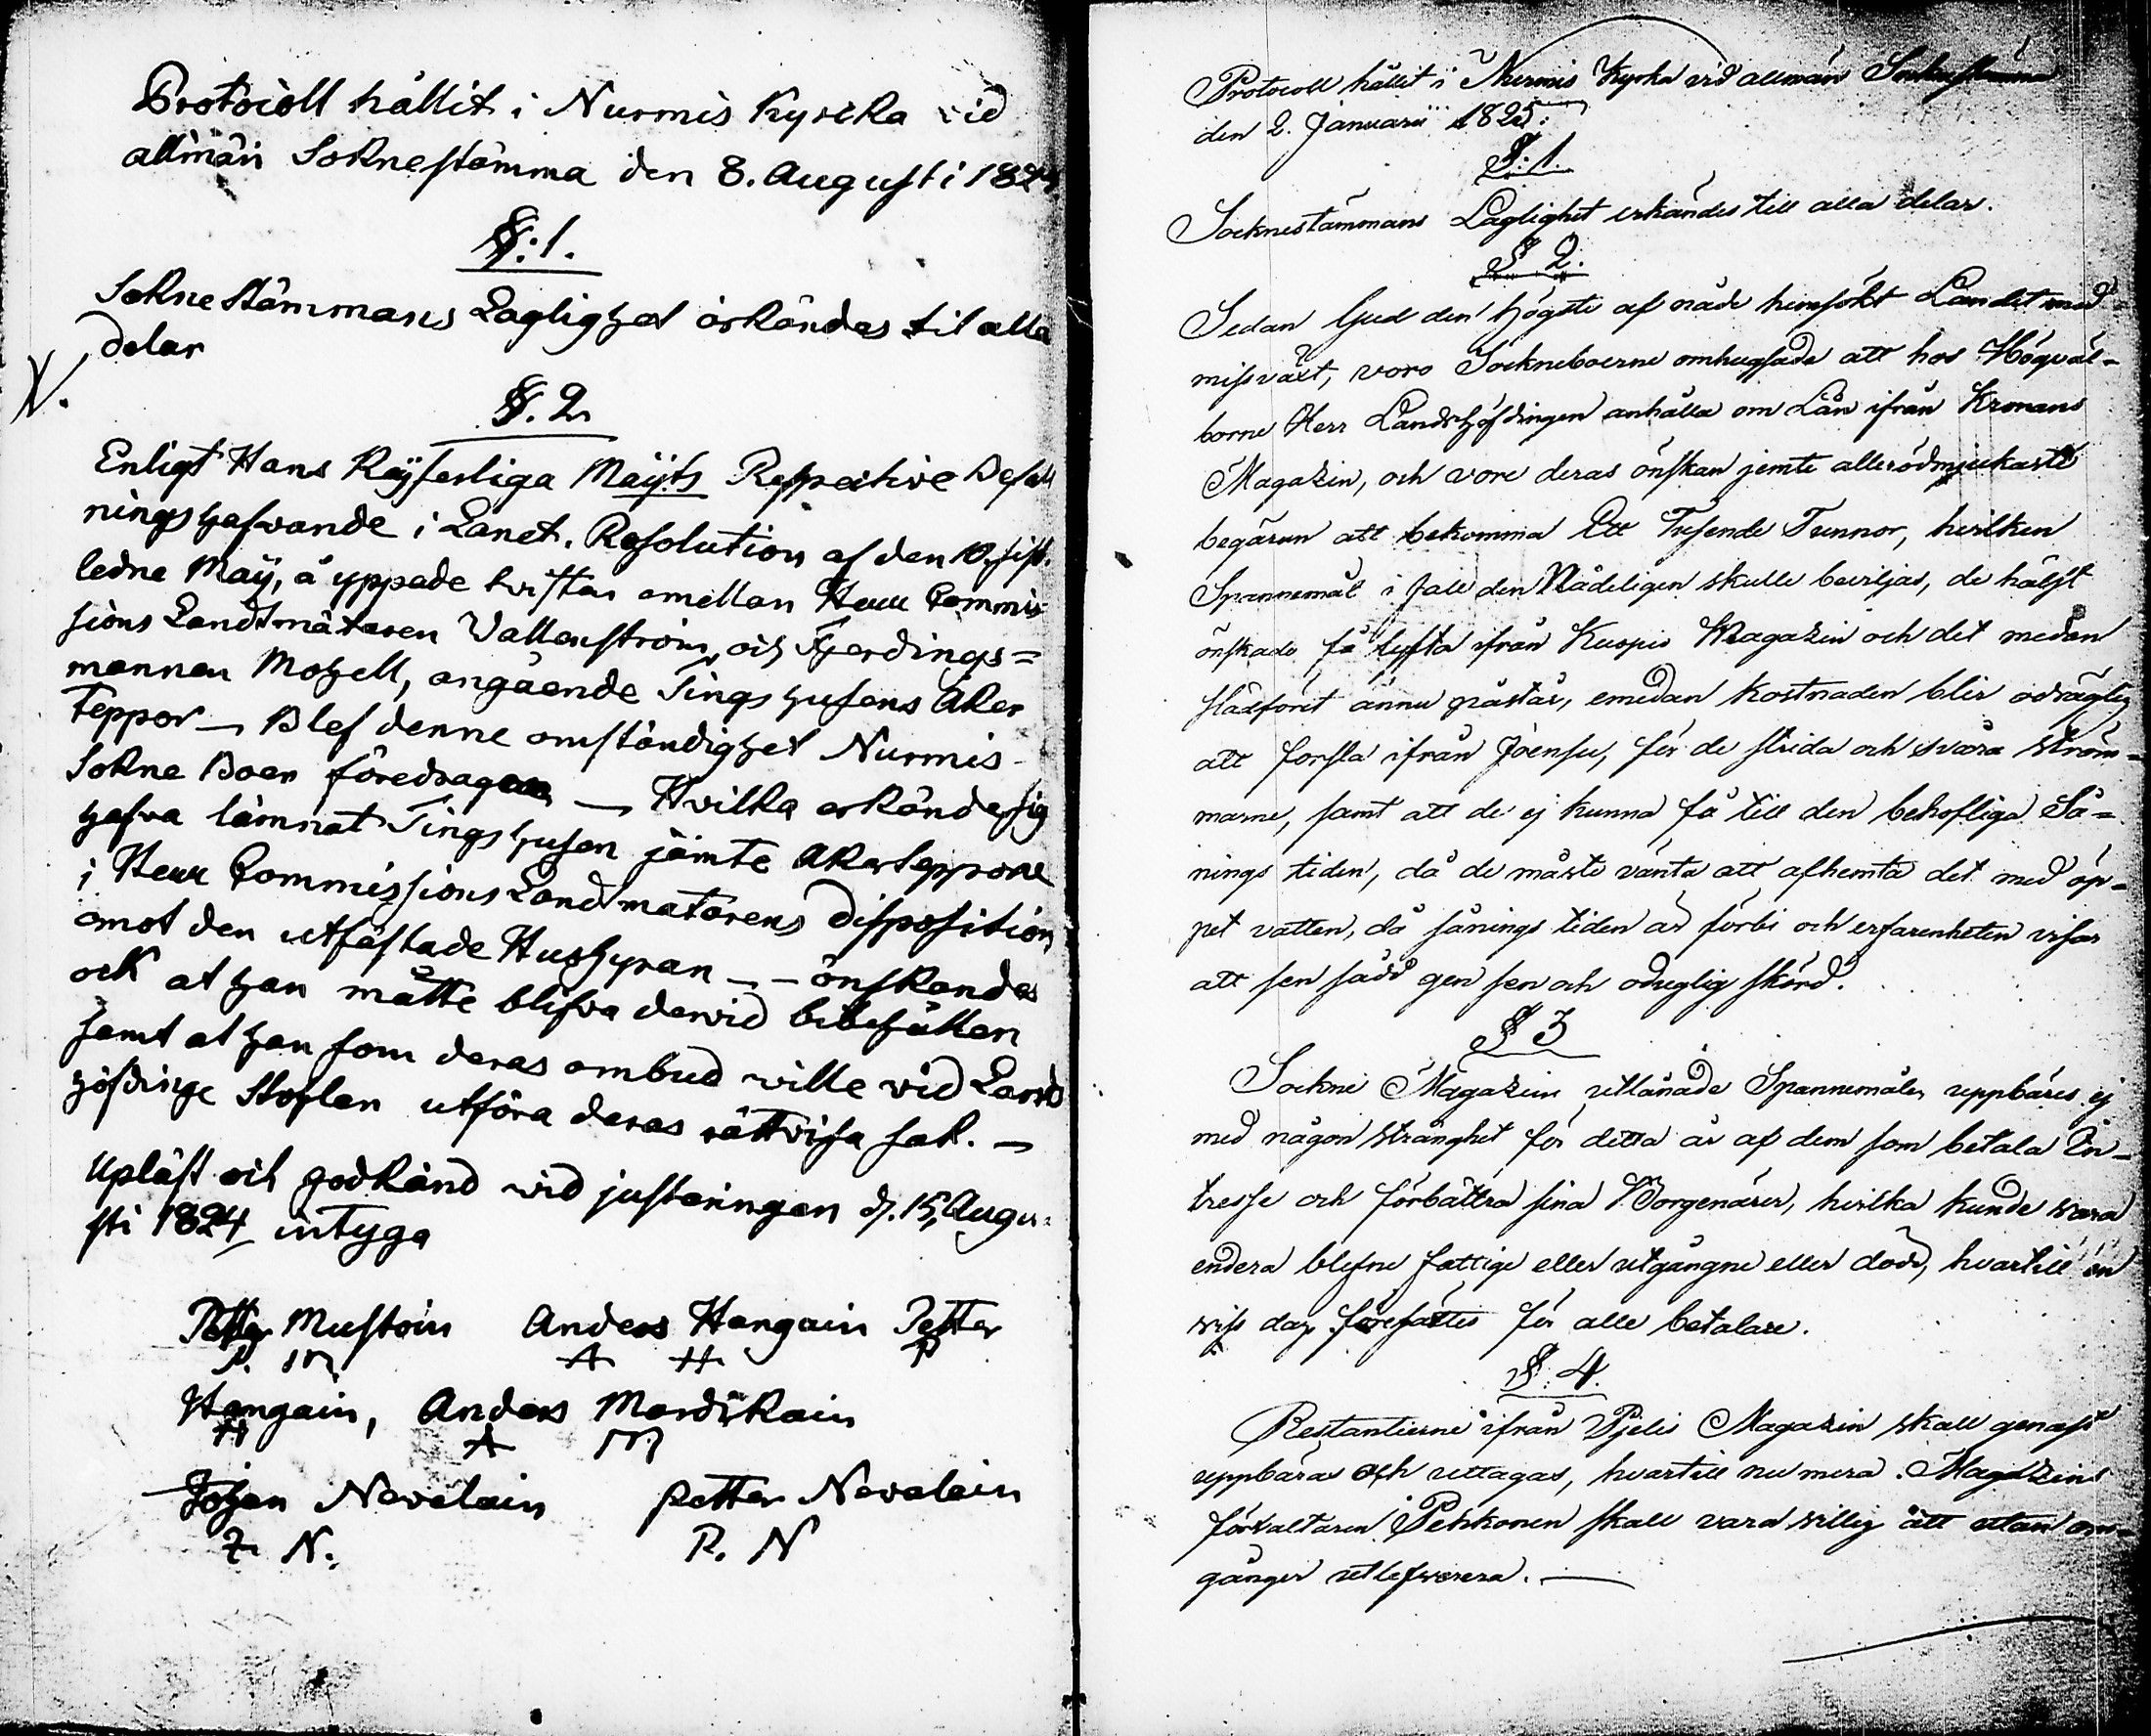 Protocoll hållit i Nurmis Kyrcka vid
allmän Soknestämma den 8. Augusti 1824
§: 1.
Sokne Stämmans Laglighet ärkändes til alla
delar
§. 2.
Enligt Hans Kejserliga Maÿts Respective Befall
ningshafvande i Länet. Resolution af den 10. sist.
ledne Maÿ, å yppade tvister emellan Herr Commis
sions Landtmätaren Vallenström, och Fjerdings=
mannen Mozell, angående Tingshusens Åker
Teppor — Blef denne omständighet Nurmis
Sokne Boer föredragen — Hvilka erkände sig
hafva lämnat Tingshusen jämte Åkerteppore
i Herr Commissions Landtmätarens Disposition
emot den utfästade Hushyran — - önskandes
ock at han måtte blifva dervid bibehållen
samt at han som deras ombud wille vid Lands
höfdinge Stolen utföra deras rättvisa sak. —
Upläst och godkänd wid justeringen d. 15. Augu=
sti 1824 intyga
Petter Mustoin Anders Hangain Petter
P. M A H. P
Hangain, Anders Mardikain
H A M
Johan Nevalain Petter Nevalain
J. N. P. N
Protocoll hållit i Nurmis Kyrka vid allmän Sockenstämma
den 2. Januarii 1825:
§: 1.
Socknestämmans Laglighet erkändes till alla delar.
§ 2.
Sedan Gud den högste af nåde hemsökt Landet med
missväxt, voro Sockneboerne omhugsade att hos Högväl=
borne Herr Landshöfdingen anhålla om Lån ifrån Kronans
Magazin, och vore deras önskan jemte allerödmjukaste
begäran att bekomma Ett Tusende Tunnor, hvilken
Spannemål i fall den Nådeligen skulle beviljas, de hälst
önskade få lyfta ifrån Kuopio Magazin och det medan
slädföret ännu påstår, emedan kostnaden blir odräglig
att forsla ifrån Joensu, för de strida och svåra ström=
marne, samt att de ej kunna få till den behofliga Så=
nings tiden, då de måste vänta att afhemta det med öp=
pet vatten, då sånings tiden är förbi och erfarenheten visar
att sen sådd gen sen och oduglig skörd.
§ 3
Sockne Magazin utlånade Spannemålen uppbäres ej
med någon stränghet för detta år af dem som betala In=
tresse och förbättra sina Borgenärer, hvilka kunde vara
endera blefne fattige eller utgångne eller döde, hvartill en
viss dag föresattes för alle betalare.
§: 4.
Restantierne ifrån Pjelis Magazin skall genast
uppbäras och uttagas, hvartill nu mera Magazins
förvaltaren Pehkonen skall vara villig att utan om=
gånger utlefverera. —